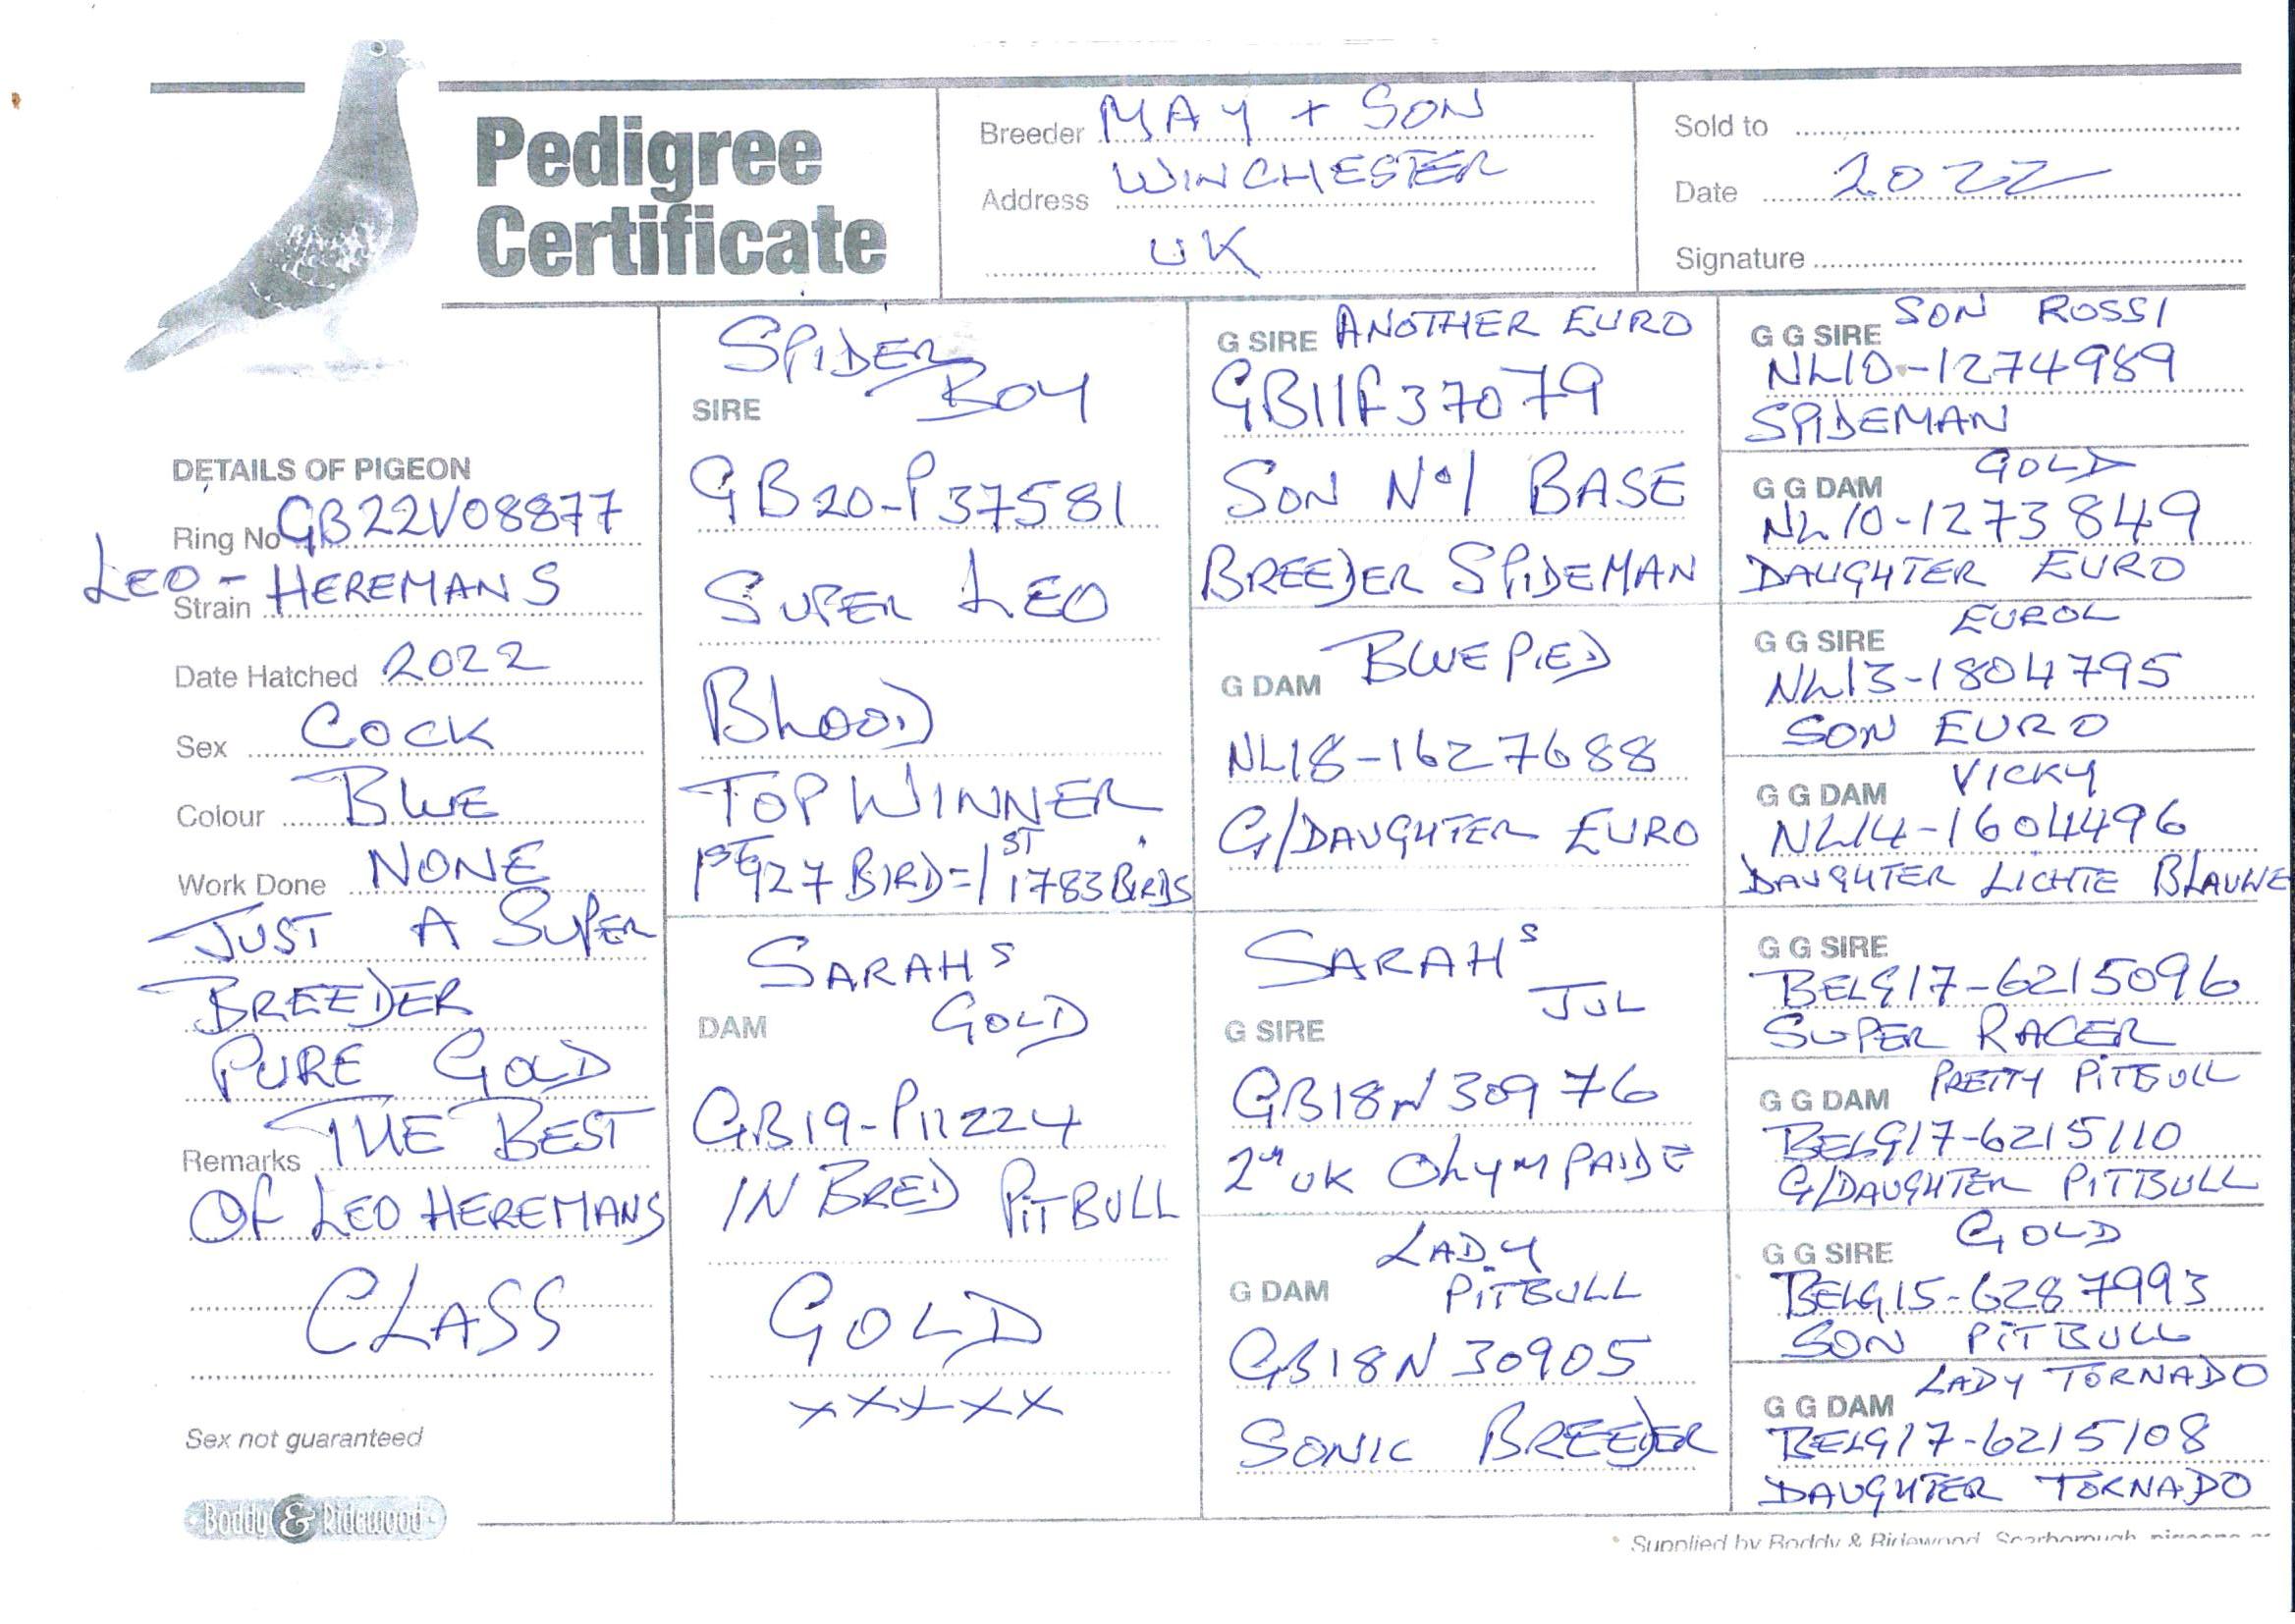 Pedigree
Certificate
Breeder MAY + SON
Address WINCHESTER
UK
Sold to
Date 2022
Signature
DETAILS OF PIGEON
Ring No GB22V08877
LEO - HEREMANS
Strain
Date Hatched 2022
Sex COCK
Colour BLUE
Work Done NONE
JUST A SUPER
BREEDER
PURE GOLD
Remarks THE BEST
OF LEO HEREMANS
CLASS
Sex not guaranteed
Boddy & Ridewood
SPIDER
BOY
SIRE
GB20-P37581
SUPER LEO
BLOOD
TOP WINNER
1ST 927 BIRD = 1ST 1783 BIRDS
SARAHS
GOLD
DAM
GB19-P11224
IN BRED PITBULL
GOLD
XXXXX
G SIRE ANOTHER EURO
GB11F37079
SON No1 BASE
BREEDER SPIDEMAN
BLUE PIED
G DAM
NL18-1627688
G/DAUGHTER EURO
SARAHS
JUL
G SIRE
GB18N30976
UK OLYMPAIDE
LADY
PITBULL
G DAM
GB18N30905
SONIC BREEDER
G G SIRE SON ROSSI
NL10-1274989
SPIDEMAN
G G DAM GOLD
NL10-1273849
DAUGHTER EURO
G G SIRE EUROL
NL13-1804795
SON EURO
G G DAM VICKY
NL14-1604496
DAUGHTER LICHTE BLAUWE
G G SIRE
BELG17-6215096
SUPER RACER
G G DAM PRETTY PITBULL
BELG17-6215110
G/DAUGHTER PITBULL
G G SIRE GOLD
BELG15-6287993
SON PITBULL
G G DAM LADY TORNADO
BELG17-6215108
DAUGHTER TORNADO
Supplied by Boddy & Ridewood, Scarborough